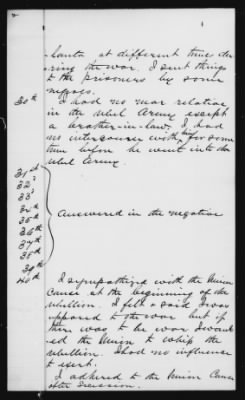 lanta at different times du
ring the war. I sent things
to the prisoners by some
negroes.
30th I had no near relative
in the rebel army except
a brother-in-law. I had
no intercourse with him for some
time before he went into the
rebel army.
31st
32d
33d
34th
35th
36th Answered in the negative
37th
38th
39th
40th I sympathized with the Union
Cause at the beginning of the
rebellion. I felt & said I was
opposed to the war but if
there was to be war I want
ed the Union to whip the
rebellion. I had no influence
to exert.
I adhered to the Union Cause
after Secession.